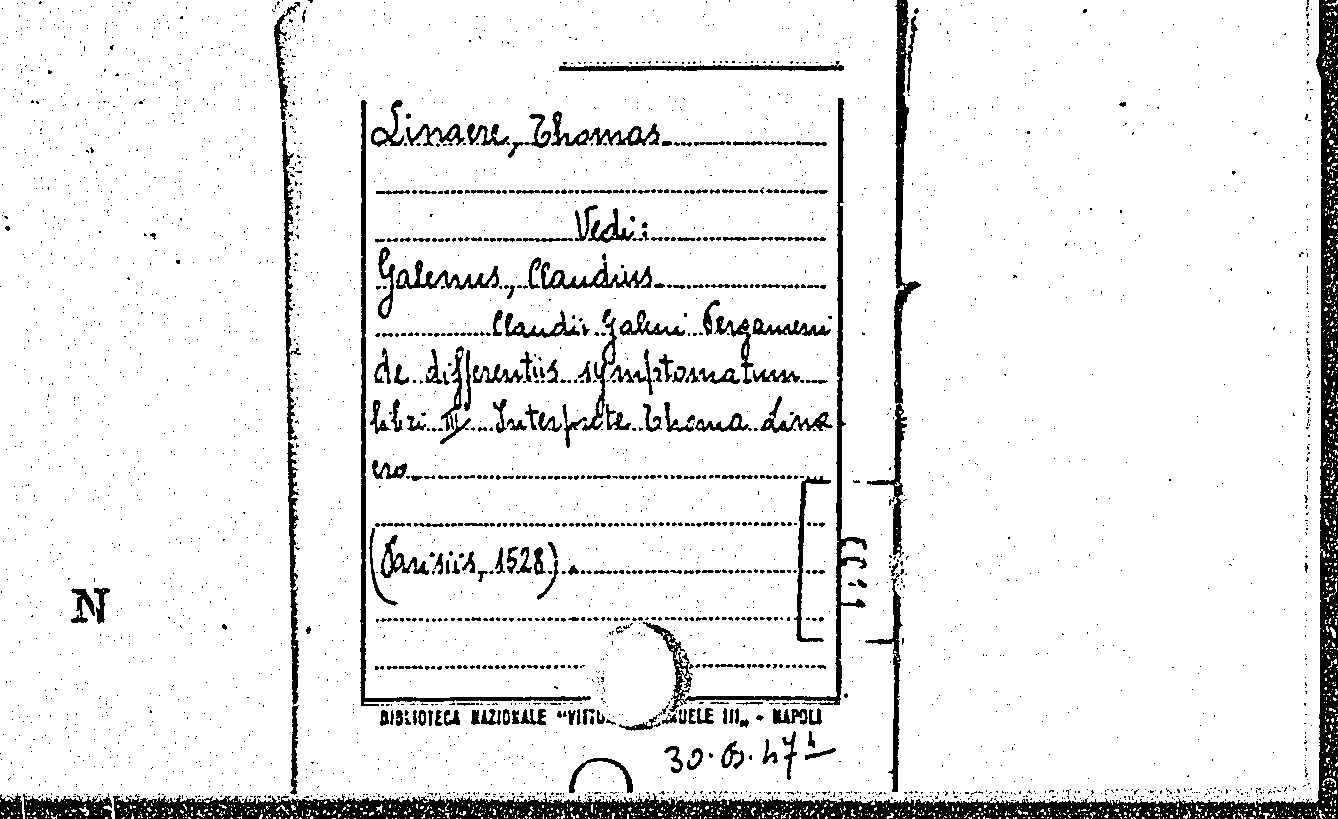 Linacre, Thomas.
Vedi:
Galenus, Claudius.
Claudii Galeni Pergameni
de differentiis symptomatum
libri III Interprete Thoma Lina
cro.
(Parisiis, 1528).
N
BIBLIOTECA NAZIONALE "VITTO UELE III„ - NAPOLI